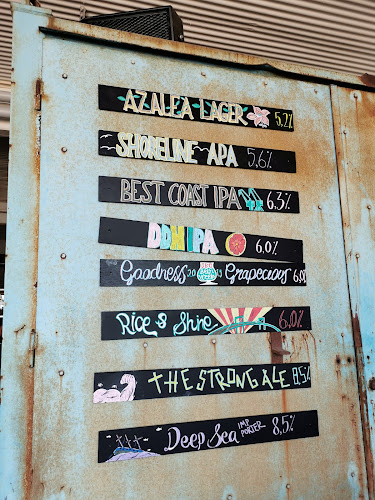 AZALEA LAGER 5.2%
SHORELINE APA 5.6%
BEST COAST IPA 6.3%
DDH IPA 6.0%
Goodness 2019 Grapecious 6.0%
Rice & Shine 6.0%
THE STRONG ALE 8,5%
Deep Sea IMP PORTER 8,5%